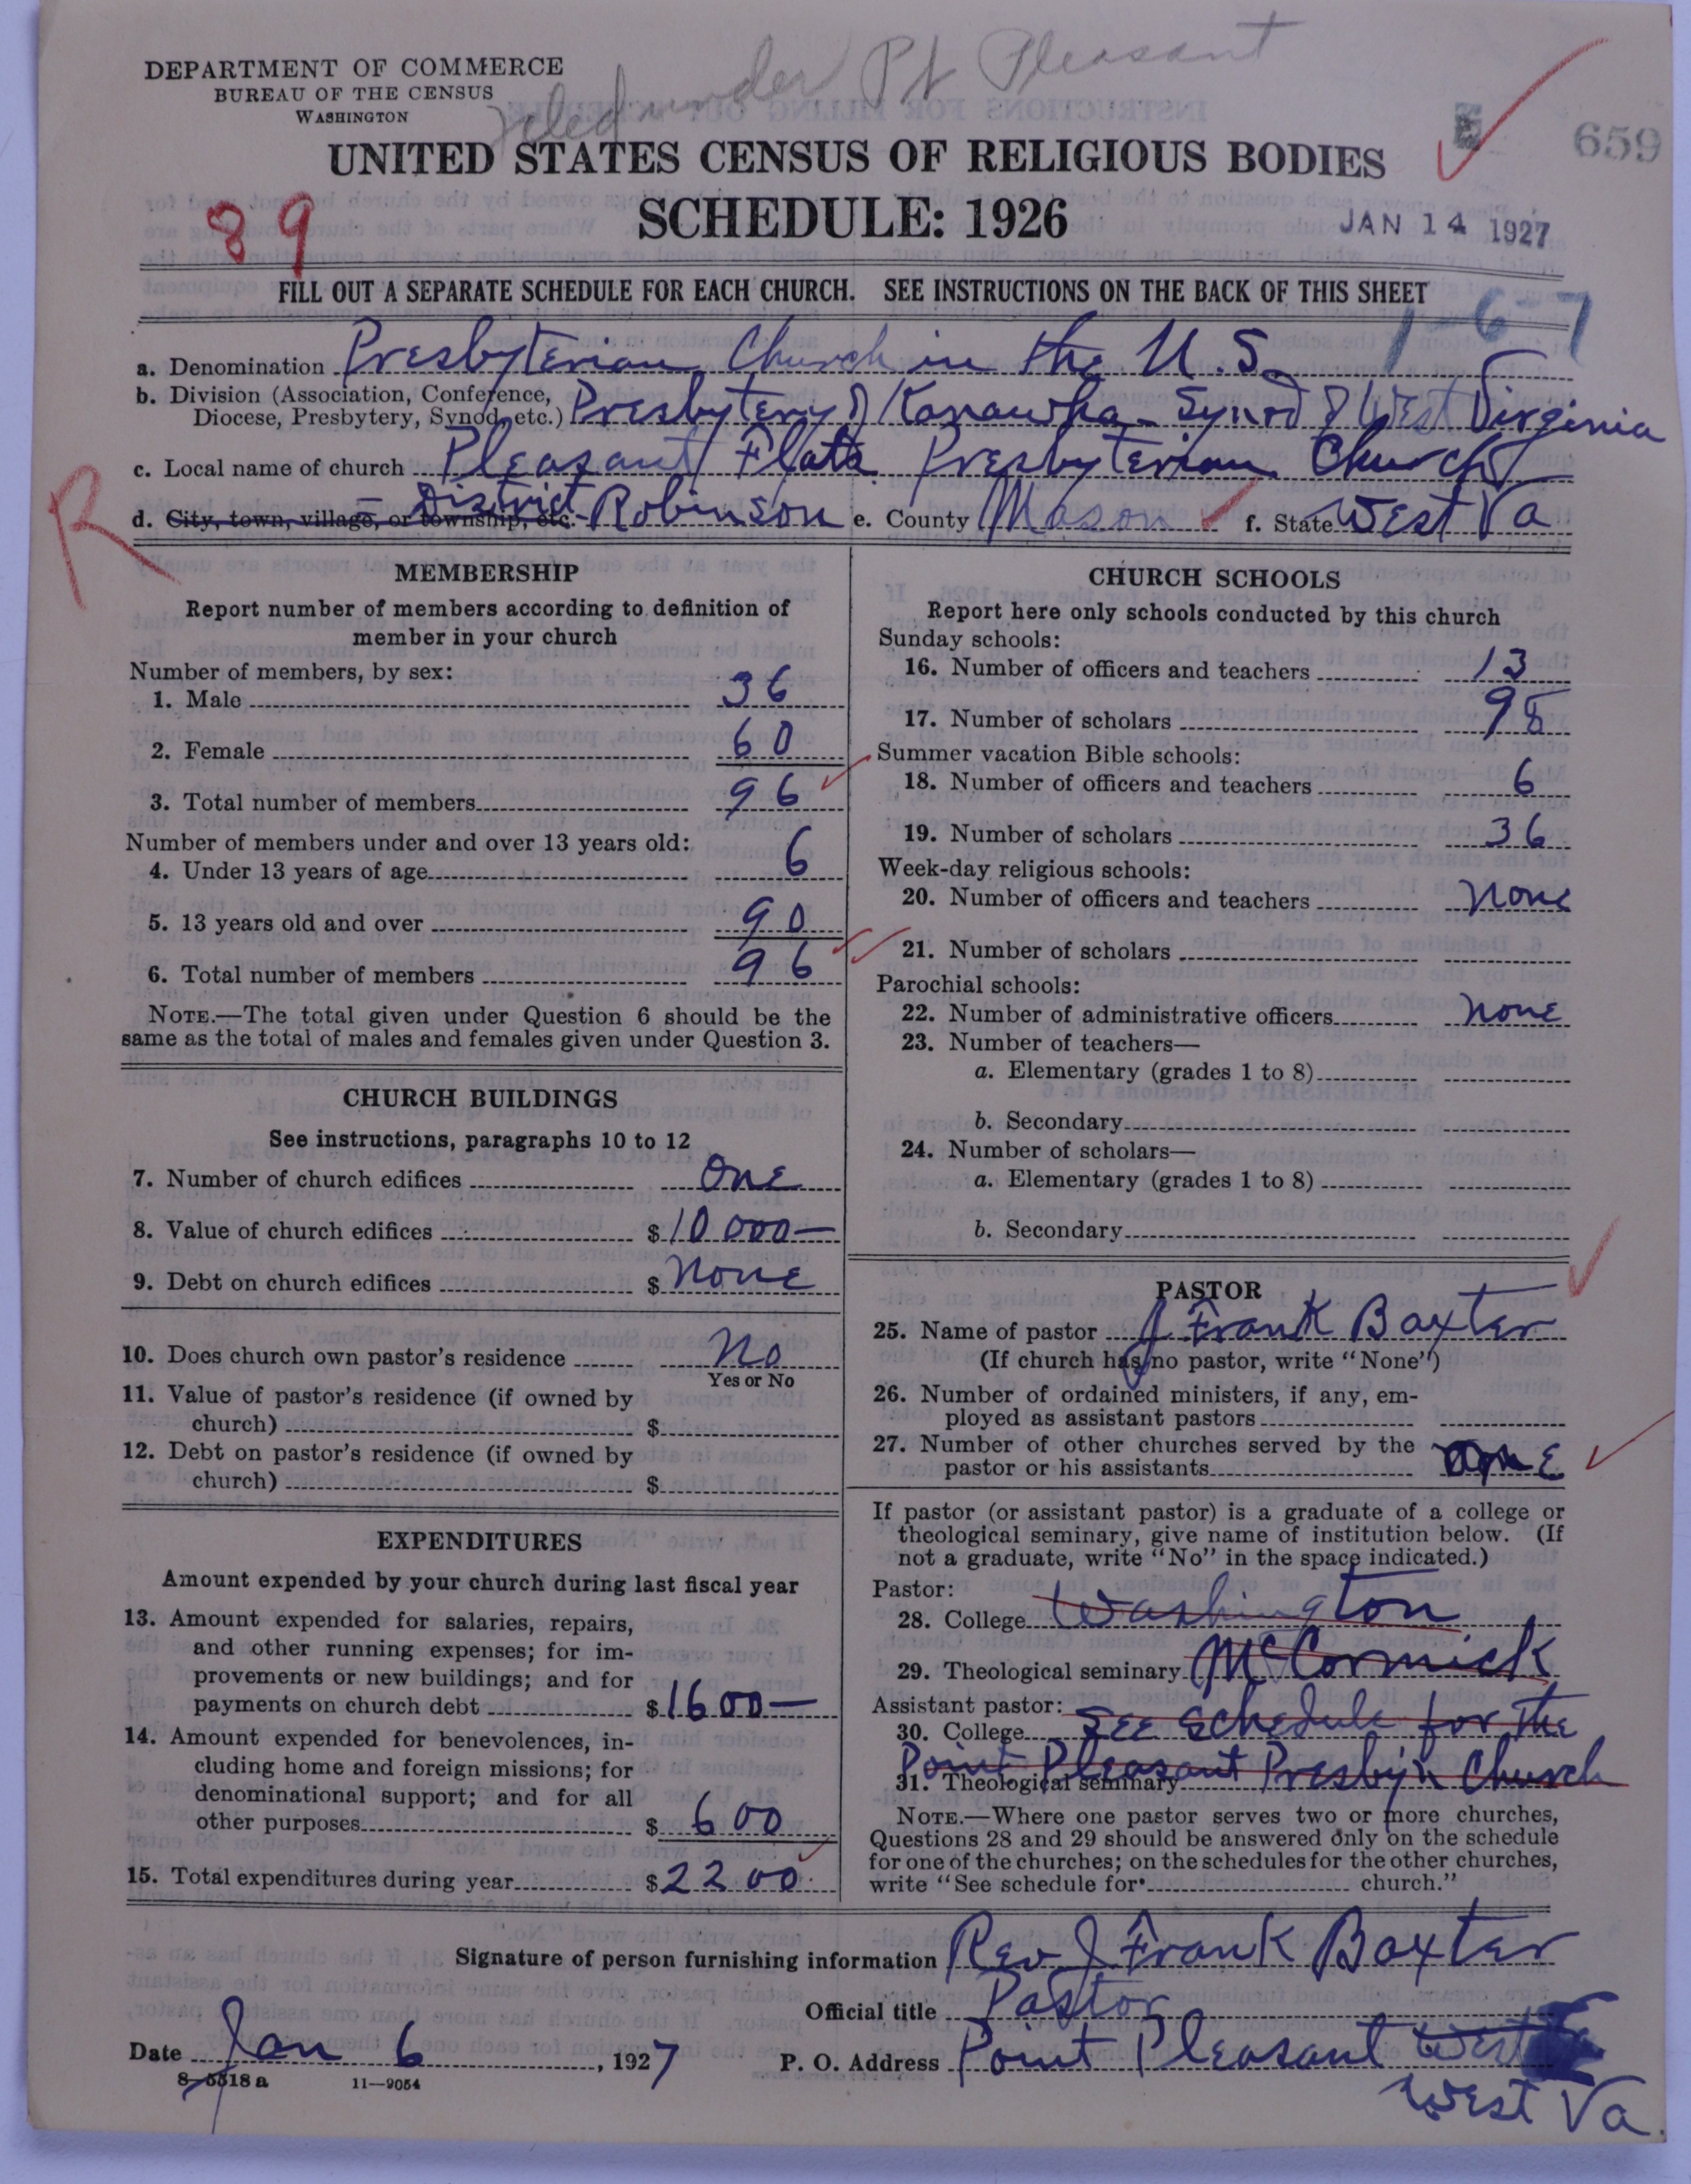 filed under Pt Pleasant
DEPARTMENT OF COMMERCE
BUREAU OF THE CENSUS
WASHINGTON
UNITED STATES CENSUS OF RELIGIOUS BODIES
659
89
SCHEDULE: 1926
JAN 14 1927
FILL OUT A SEPARATE SCHEDULE FOR EACH CHURCH. SEE INSTRUCTIONS ON THE BACK OF THIS SHEET
1-6-7
a. Denomination Presbyterian Church in the U.S.
b. Division (Association, Conference, Diocese, Presbytery, Synod, etc.) Presbytery of Kanawha - Synod of West Virginia
c. Local name of church Pleasant Flats Presbyterian Church
R
d. City, town, village, or township, etc. - District Robinson e. County Mason f. State West Va
MEMBERSHIP
Report number of members according to definition of
member in your church
Number of members, by sex:
1. Male 36
2. Female 60
3. Total number of members 96
Number of members under and over 13 years old:
4. Under 13 years of age 6
5. 13 years old and over 90
6. Total number of members 96
NOTE.—The total given under Question 6 should be the
same as the total of males and females given under Question 3.
CHURCH BUILDINGS
See instructions, paragraphs 10 to 12
7. Number of church edifices One
8. Value of church edifices $10 000—
9. Debt on church edifices $ none
10. Does church own pastor's residence No
Yes or No
11. Value of pastor's residence (if owned by
church) $
12. Debt on pastor's residence (if owned by
church) $
EXPENDITURES
Amount expended by your church during last fiscal year
13. Amount expended for salaries, repairs,
and other running expenses; for im-
provements or new buildings; and for
payments on church debt $1600—
14. Amount expended for benevolences, in-
cluding home and foreign missions; for
denominational support; and for all
other purposes $ 600
15. Total expenditures during year $2200
CHURCH SCHOOLS
Report here only schools conducted by this church
Sunday schools:
16. Number of officers and teachers 13
17. Number of scholars 98
Summer vacation Bible schools:
18. Number of officers and teachers 6
19. Number of scholars 36
Week-day religious schools:
20. Number of officers and teachers none
21. Number of scholars
Parochial schools:
22. Number of administrative officers none
23. Number of teachers—
a. Elementary (grades 1 to 8)
b. Secondary
24. Number of scholars—
a. Elementary (grades 1 to 8)
b. Secondary
PASTOR
25. Name of pastor J Frank Baxter
(If church has no pastor, write "None")
26. Number of ordained ministers, if any, em-
ployed as assistant pastors
27. Number of other churches served by the
pastor or his assistants one
If pastor (or assistant pastor) is a graduate of a college or
theological seminary, give name of institution below. (If
not a graduate, write "No" in the space indicated.)
Pastor:
28. College Washington
29. Theological seminary McCormick
Assistant pastor:
30. College See Schedule for the
Point Pleasant Presby'n Church
31. Theological seminary
NOTE.—Where one pastor serves two or more churches,
Questions 28 and 29 should be answered only on the schedule
for one of the churches; on the schedules for the other churches,
write "See schedule for church."
Signature of person furnishing information Rev J Frank Baxter
Official title Pastor
Date Jan 6, 1927 P. O. Address Point Pleasant West
West Va.
8-5518 a 11—9054